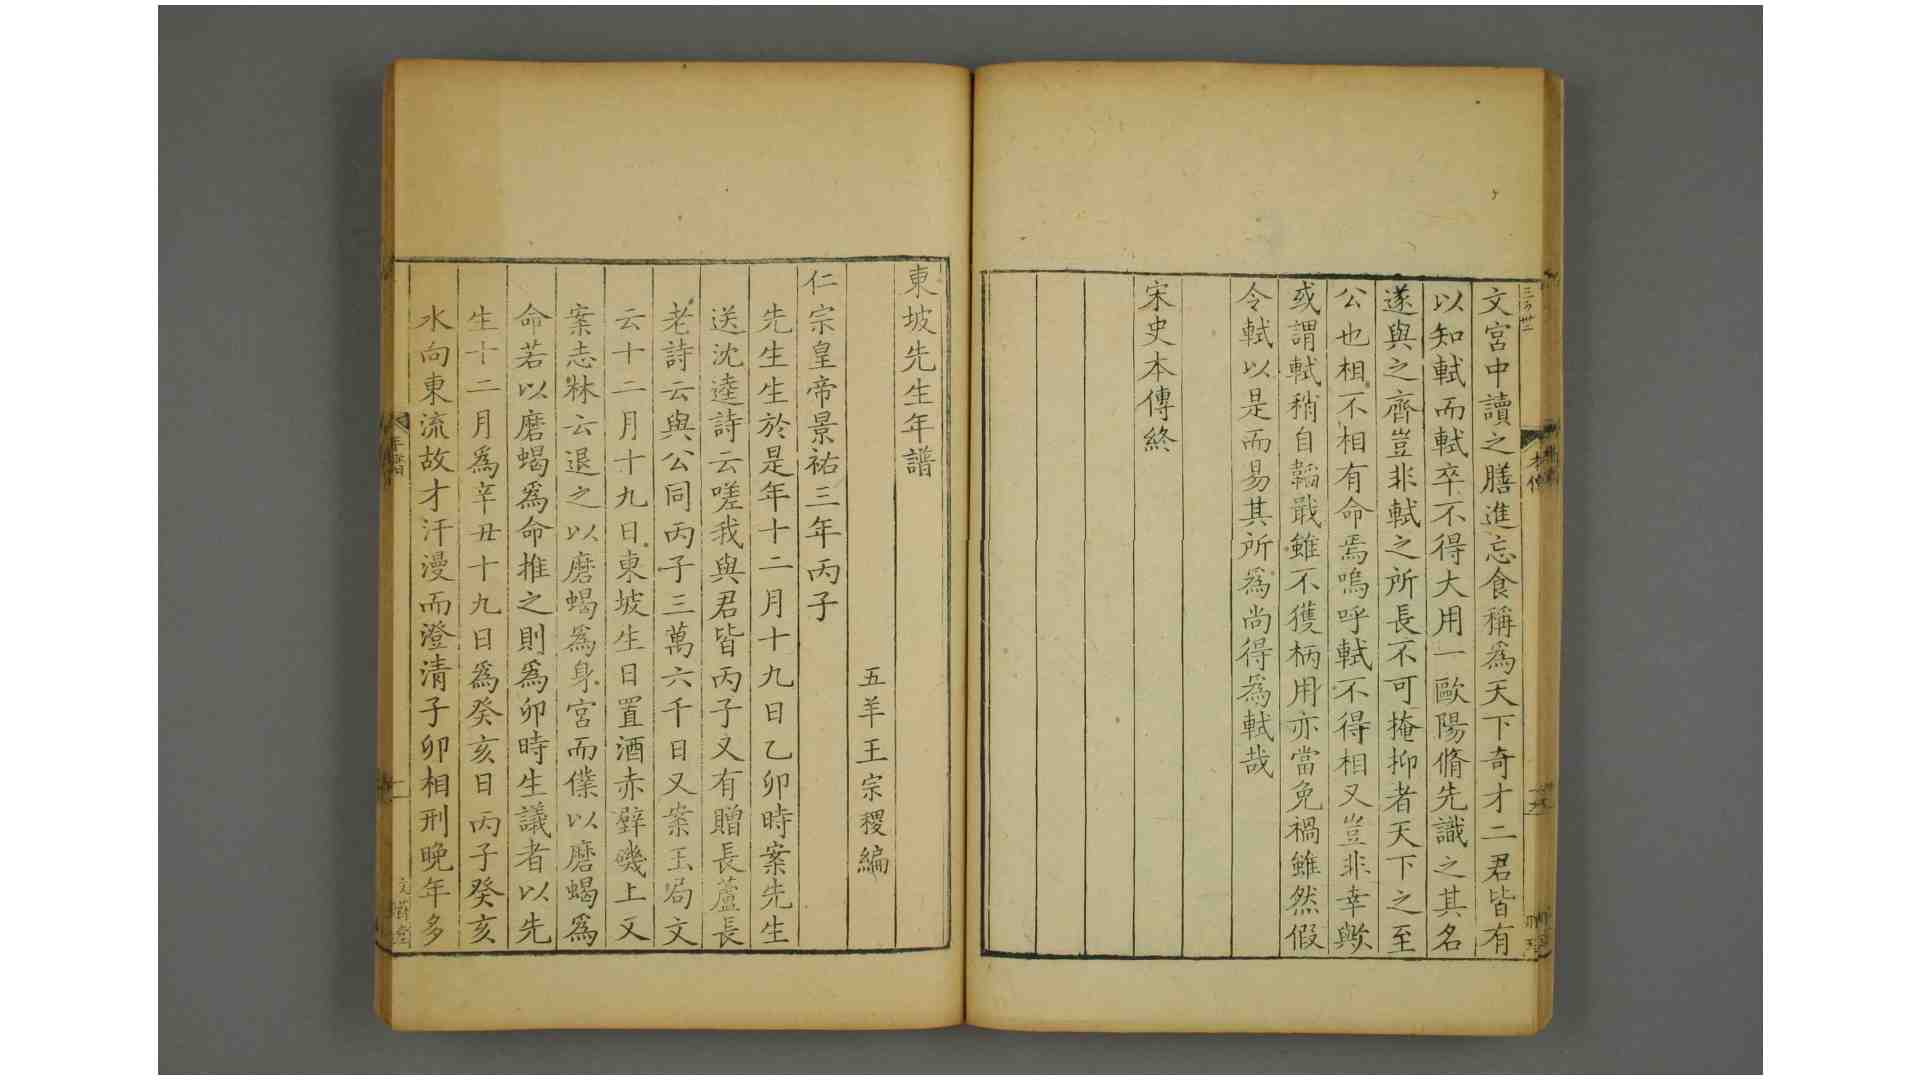 文宮中讀之膳進忘食稱爲天下奇才二君皆有
以知軾而軾卒不得大用一歐陽脩先識之其名
遂與之齊豈非軾之所長不可掩抑者天下之至
公也相不相有命焉嗚呼軾不得相又豈非幸歟
或謂軾稍自韜戢雖不獲柄用亦當免禍雖然假
令軾以是而易其所爲尚得爲軾哉
宋史本傳終
東坡先生年譜
五羊王宗稷編
仁宗皇帝景祐三年丙子
先生生於是年十二月十九日乙卯時案先生
送沈逵詩云嗟我與君皆丙子又有贈長蘆長
老詩云與公同丙子三萬六千日又案玉局文
云十二月十九日東坡生日置酒赤壁磯上又
案志林云退之以磨蝎爲身宮而僕以磨蝎爲
命若以磨蝎爲命推之則爲卯時生議者以先
生十二月爲辛丑十九日爲癸亥日丙子癸亥
水向東流故才汗漫而澄清子卯相刑晚年多
年譜